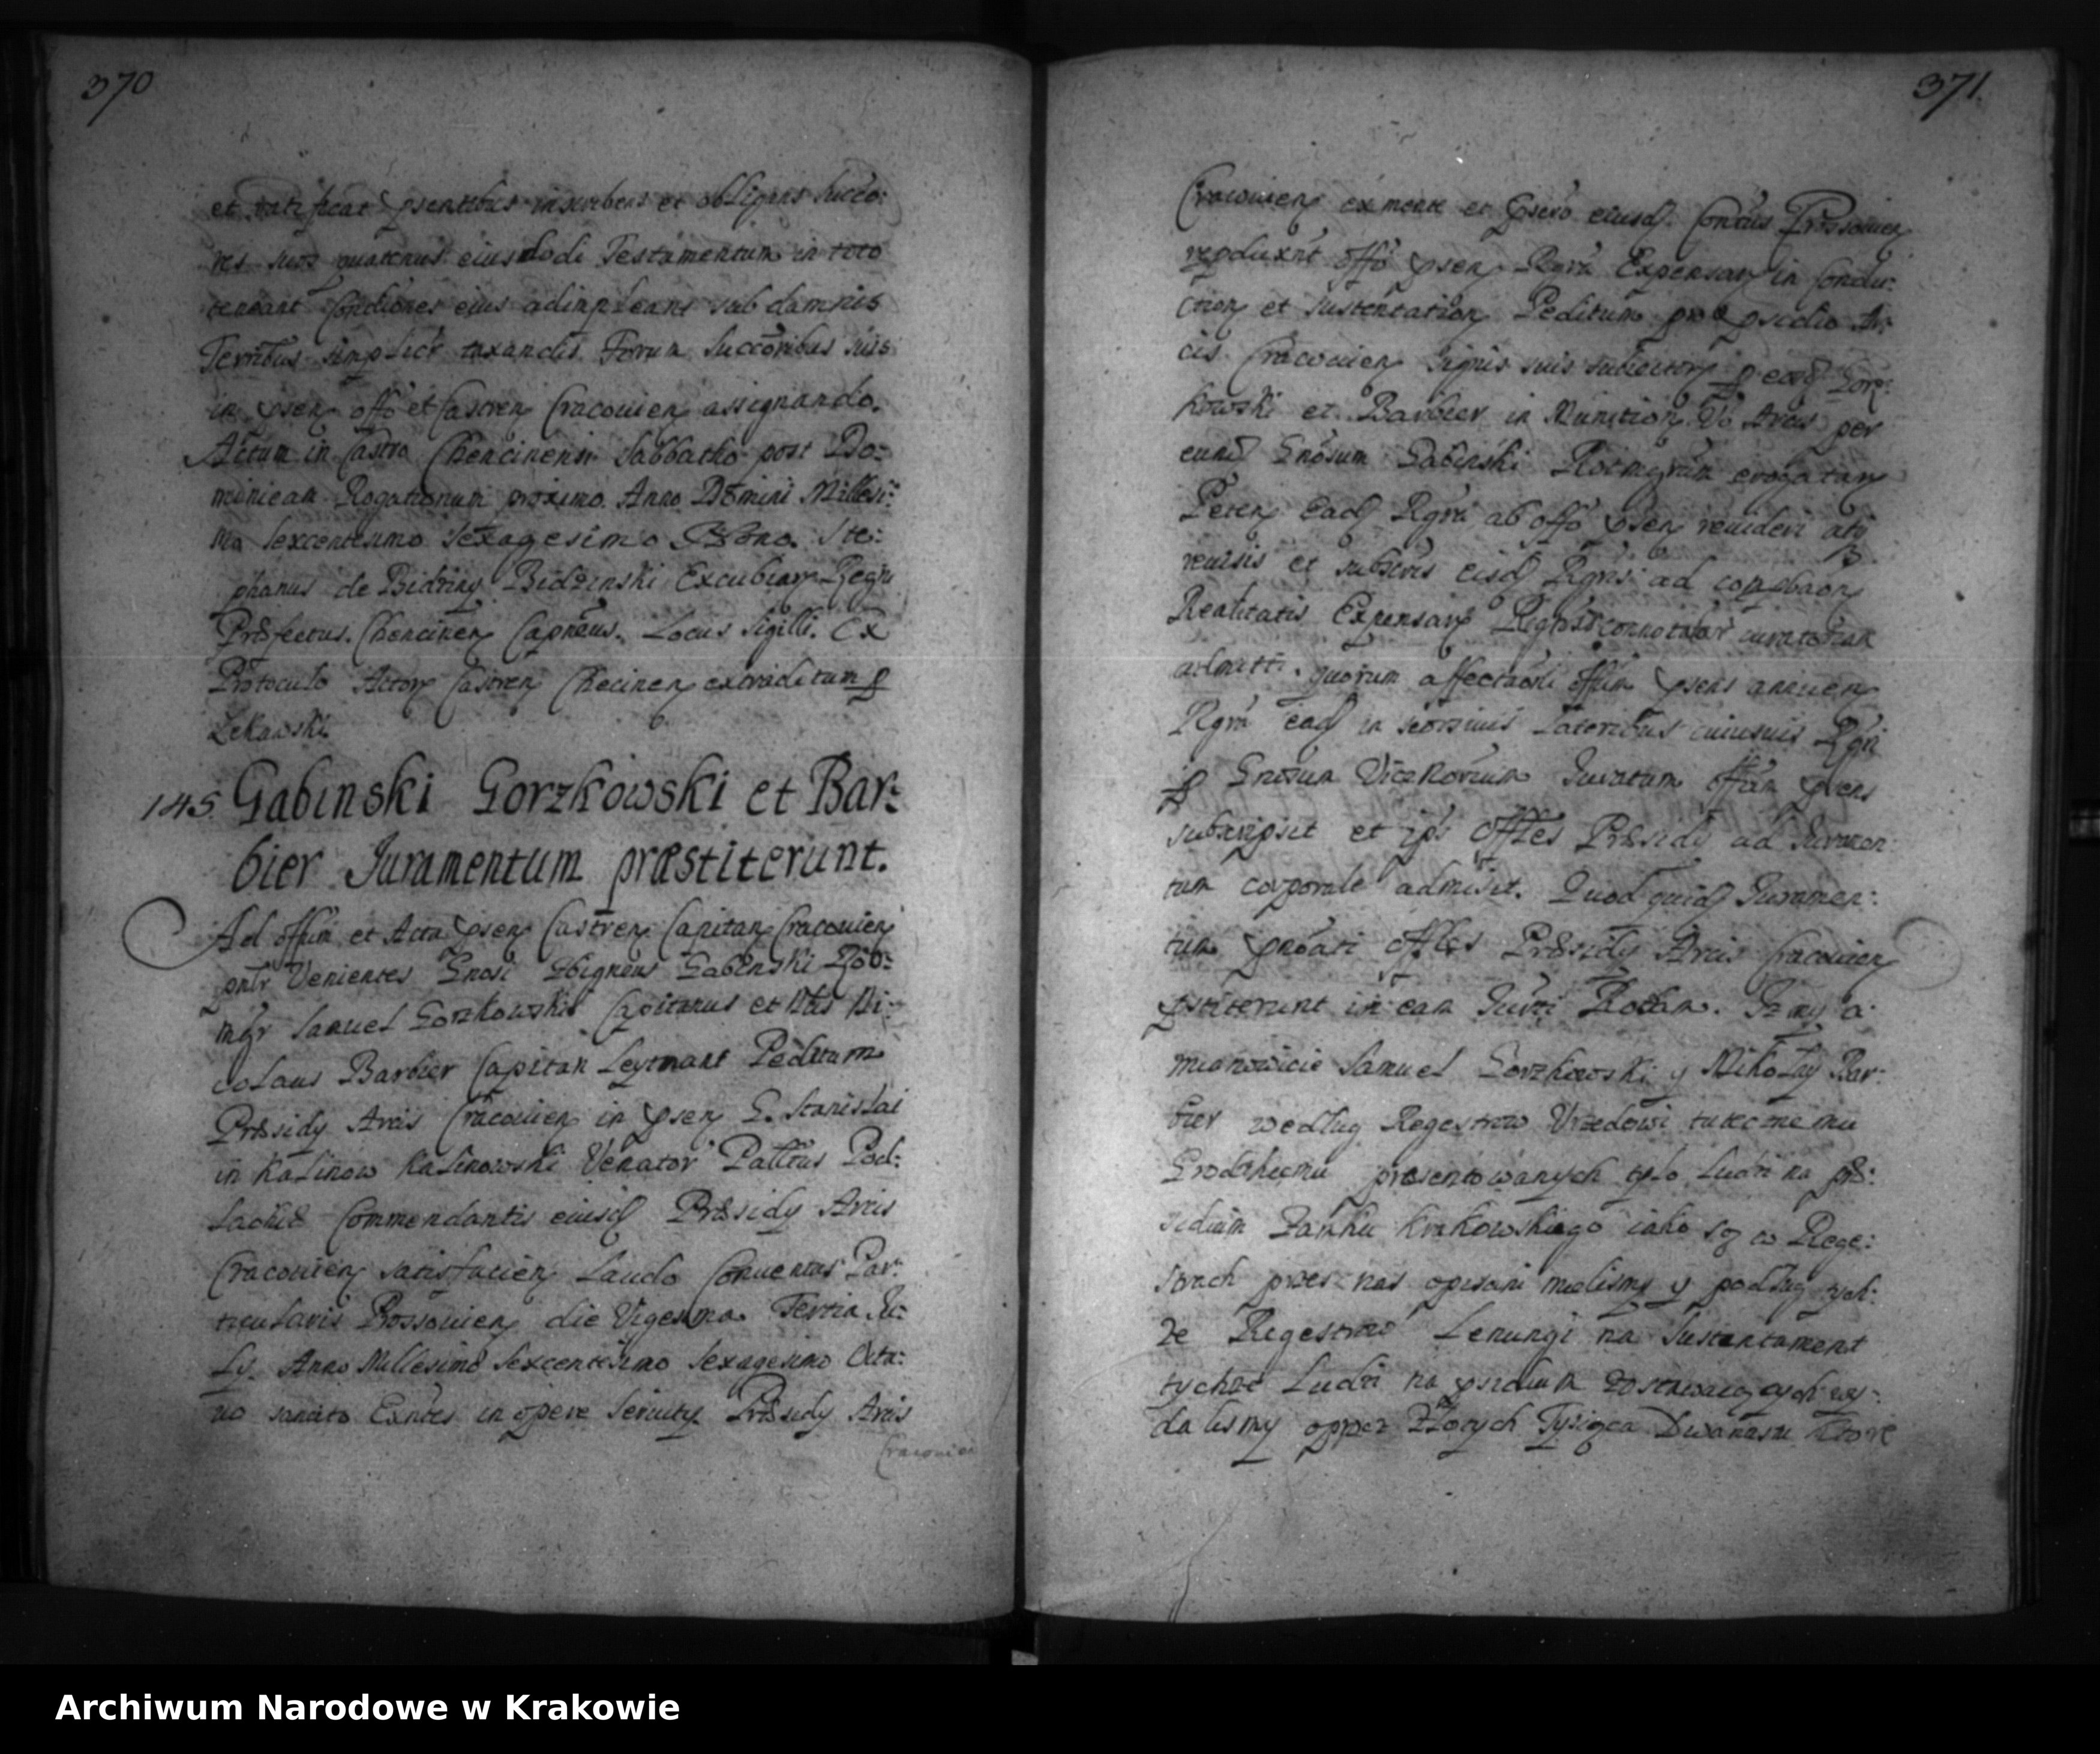 370
et ratificat psentibus inscribens et obligans succo:
res suos quatenus eiusmodi Testamentum in toto
teneant Condiones eius adimpleant sub damnis
Terribus simplicr taxandis Forum Succoribus suis
in psen offo et Castren Cracouien assignando.
Actum in Castro Chencinensi Sabbatho post Do:
minicam Rogationum proximo. Anno Domini Millesi:
mo Sexcentesimo Sexagesimo Ste:
phanus de Bidziny Bidzinski Excubiar Regni
Præfectus. Chencinen Capneus. Locus Sigilli. Ex
Protocullo Actor Castren Checinen extraditum p
Lekawski
145. Gabinski Gorzkowski et Bar:
bier Juramentum præstiterunt.
Ad offm et Acta psen Castren Capitan Cracouien
pnlr Venientes Gnosi Zbigneus Gabinski Rot:
mgr Samuel Gorzkowski Capitanus et Nbs Ni:
colaus Barbier Capitan Leytnant Peditum
Præsidy Arcis Cracouien in psen G. Stanislai
in Kalinow Kalinowski Venator Pallnus Pod:
lachiæ Commendantis eiusd Præsidy Arcis
Cracouien satisfacien Laudo Conuentus Par:
ticularis Prossouien die Vigesima Tertia Ju:
ly. Anno Millesimo Sexcentesimo Sexagesimo Octa:
uo sancito Exntes in opere Seruity Præsidy Arcis
Cracouien
371.
Cracouien ex mente et eiusd Contus Prossouien
reproduxnt offo psen Rgra Expensar in Condu:
ction et sustentation Peditum pro psidio Ar:
cis Cracouien signis suis subiector p eosd Gorz:
kowski et Barbier in Munition Arcis per
eund Gnosum Gabinski Rotmgrum erogatar
Peten Ead Rgra ab offo psen reuideri atq
reuisis et subscris eisd Rgris ad comprobaon
Realitatis Expensar connotatar iuratoriam
admitti. quorum affectaoni offm psens annuen
Rgra ead in seorsiuis Lateribus cuiusuis Rgri
p Gnosum Juratum offm psens
subscripsit et ips Offles Præsidy ad Juramen:
tum corporale admisit. Quod quid Juramen:
tum pnoati offles Præsidy Arcis Cracouien
pstiterunt in eam Jurti Rotam. Jz my a
mianowicie Samuel Gorzkowski y Mikołay Bar:
bier według Regestrow Vrzedowi tuteczne mu
Grodzkiemu præsentowanych tylo Ludzi na præ:
sidium Zamku Krakowskiego iako są w Rege:
strach przez nas opisani mielismy y podług tych:
ze Regestrow Lenungi na Sustentament
tychze Ludzi na psidium zostawaiących wy:
da lismy oprocz Złotych Tysiąca Dwanastu ktore
Archiwum Narodowe w Krakowie